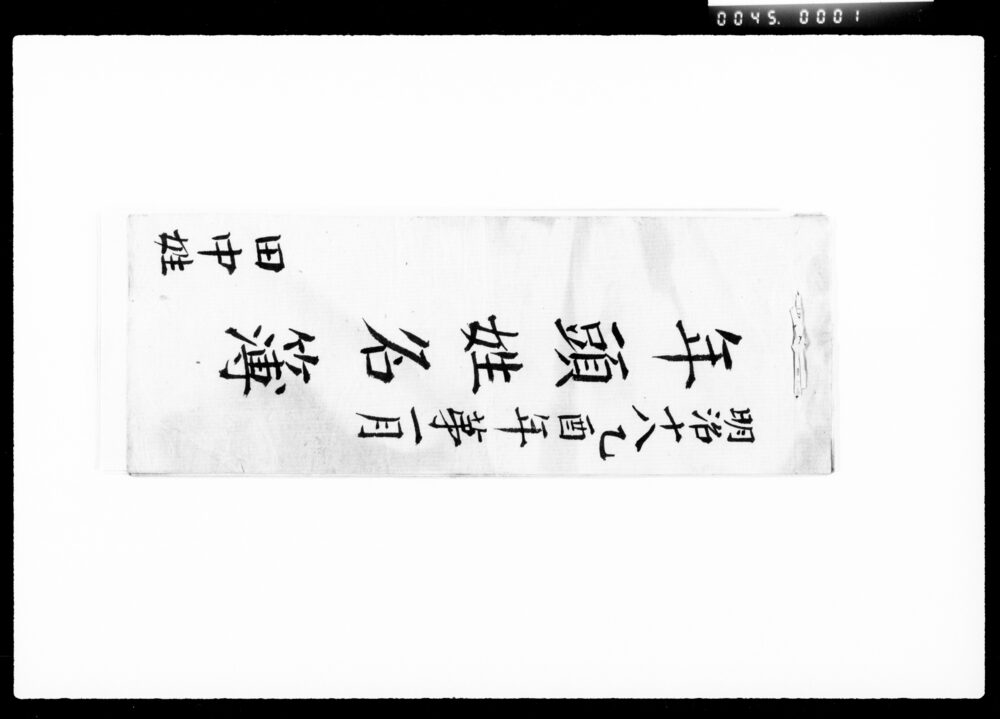 0045. 0001
明治十八乙酉年第一月
年頭姓名簿
田中姓